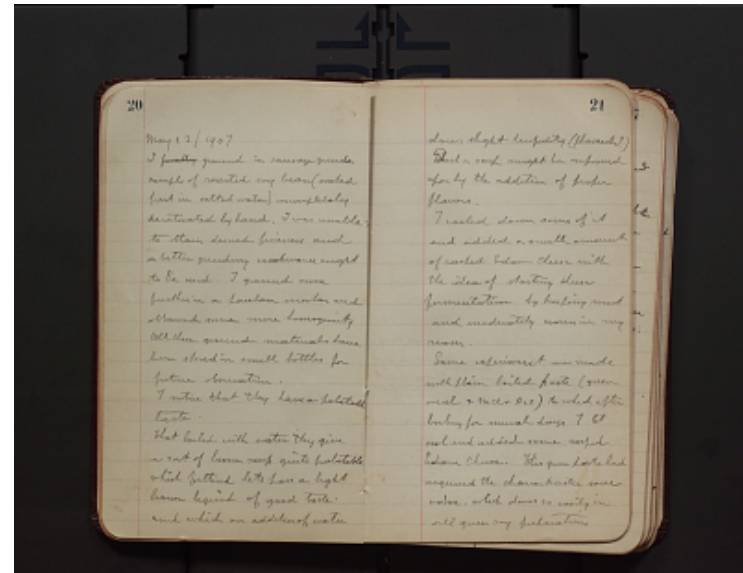 20
May 13/1907
I ground in sausage grinder
sample of roasted soy bean (soaked
first in salted water) incompletely
by hand. I was unable
to obtain desired fineness and
a better grinding machinery ought
to be used. I ground some
further in a mortar and
obtained mass more homogeneous
All these ground materials have
been stored in small bottles for
future observation.
I notice that they have a palatable
taste.
That boiled with water they give
a sort of brown soup quite palatable
which filtered lets pass a light
brown liquid of good taste.
and which on addition of water
21
shows slight turbidity
Such a soup might be improved
upon by the addition of proper
flavors.
I cooled down some of it
and added a small amount
of Edam Cheese with
the idea of starting cheese
fermentation by keeping moist
and moderately warm in my
room.
Same experiment was made
with plain boiled paste (
meal & NaCl + ) to which after
boiling for several days I let
cool and added some rasped
Edam Cheese. This paste had
acquired the characteristic sour
odor, which shows so easily in
all my preparations